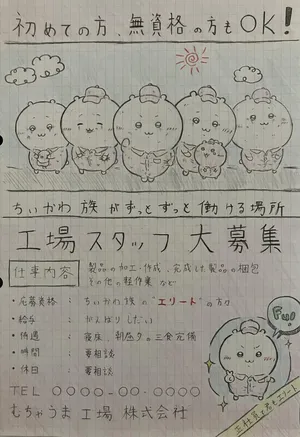 初めての方、無資格の方もOK!
ちいかわ族がずっとずっと働ける場所
工場スタッフ大募集
仕事内容 製品の加工・作成、完成した製品の梱包
その他の軽作業 など
・応募資格：ちいかわ族の"エリート"の方々
・給与：がんばりしだい
・待遇：寝床、朝昼夕の三食完備
・時間：要相談
・休日：要相談
TEL 〇〇〇〇-〇〇-〇〇〇〇
むちゃうま工場 株式会社
正社員で君もエリート